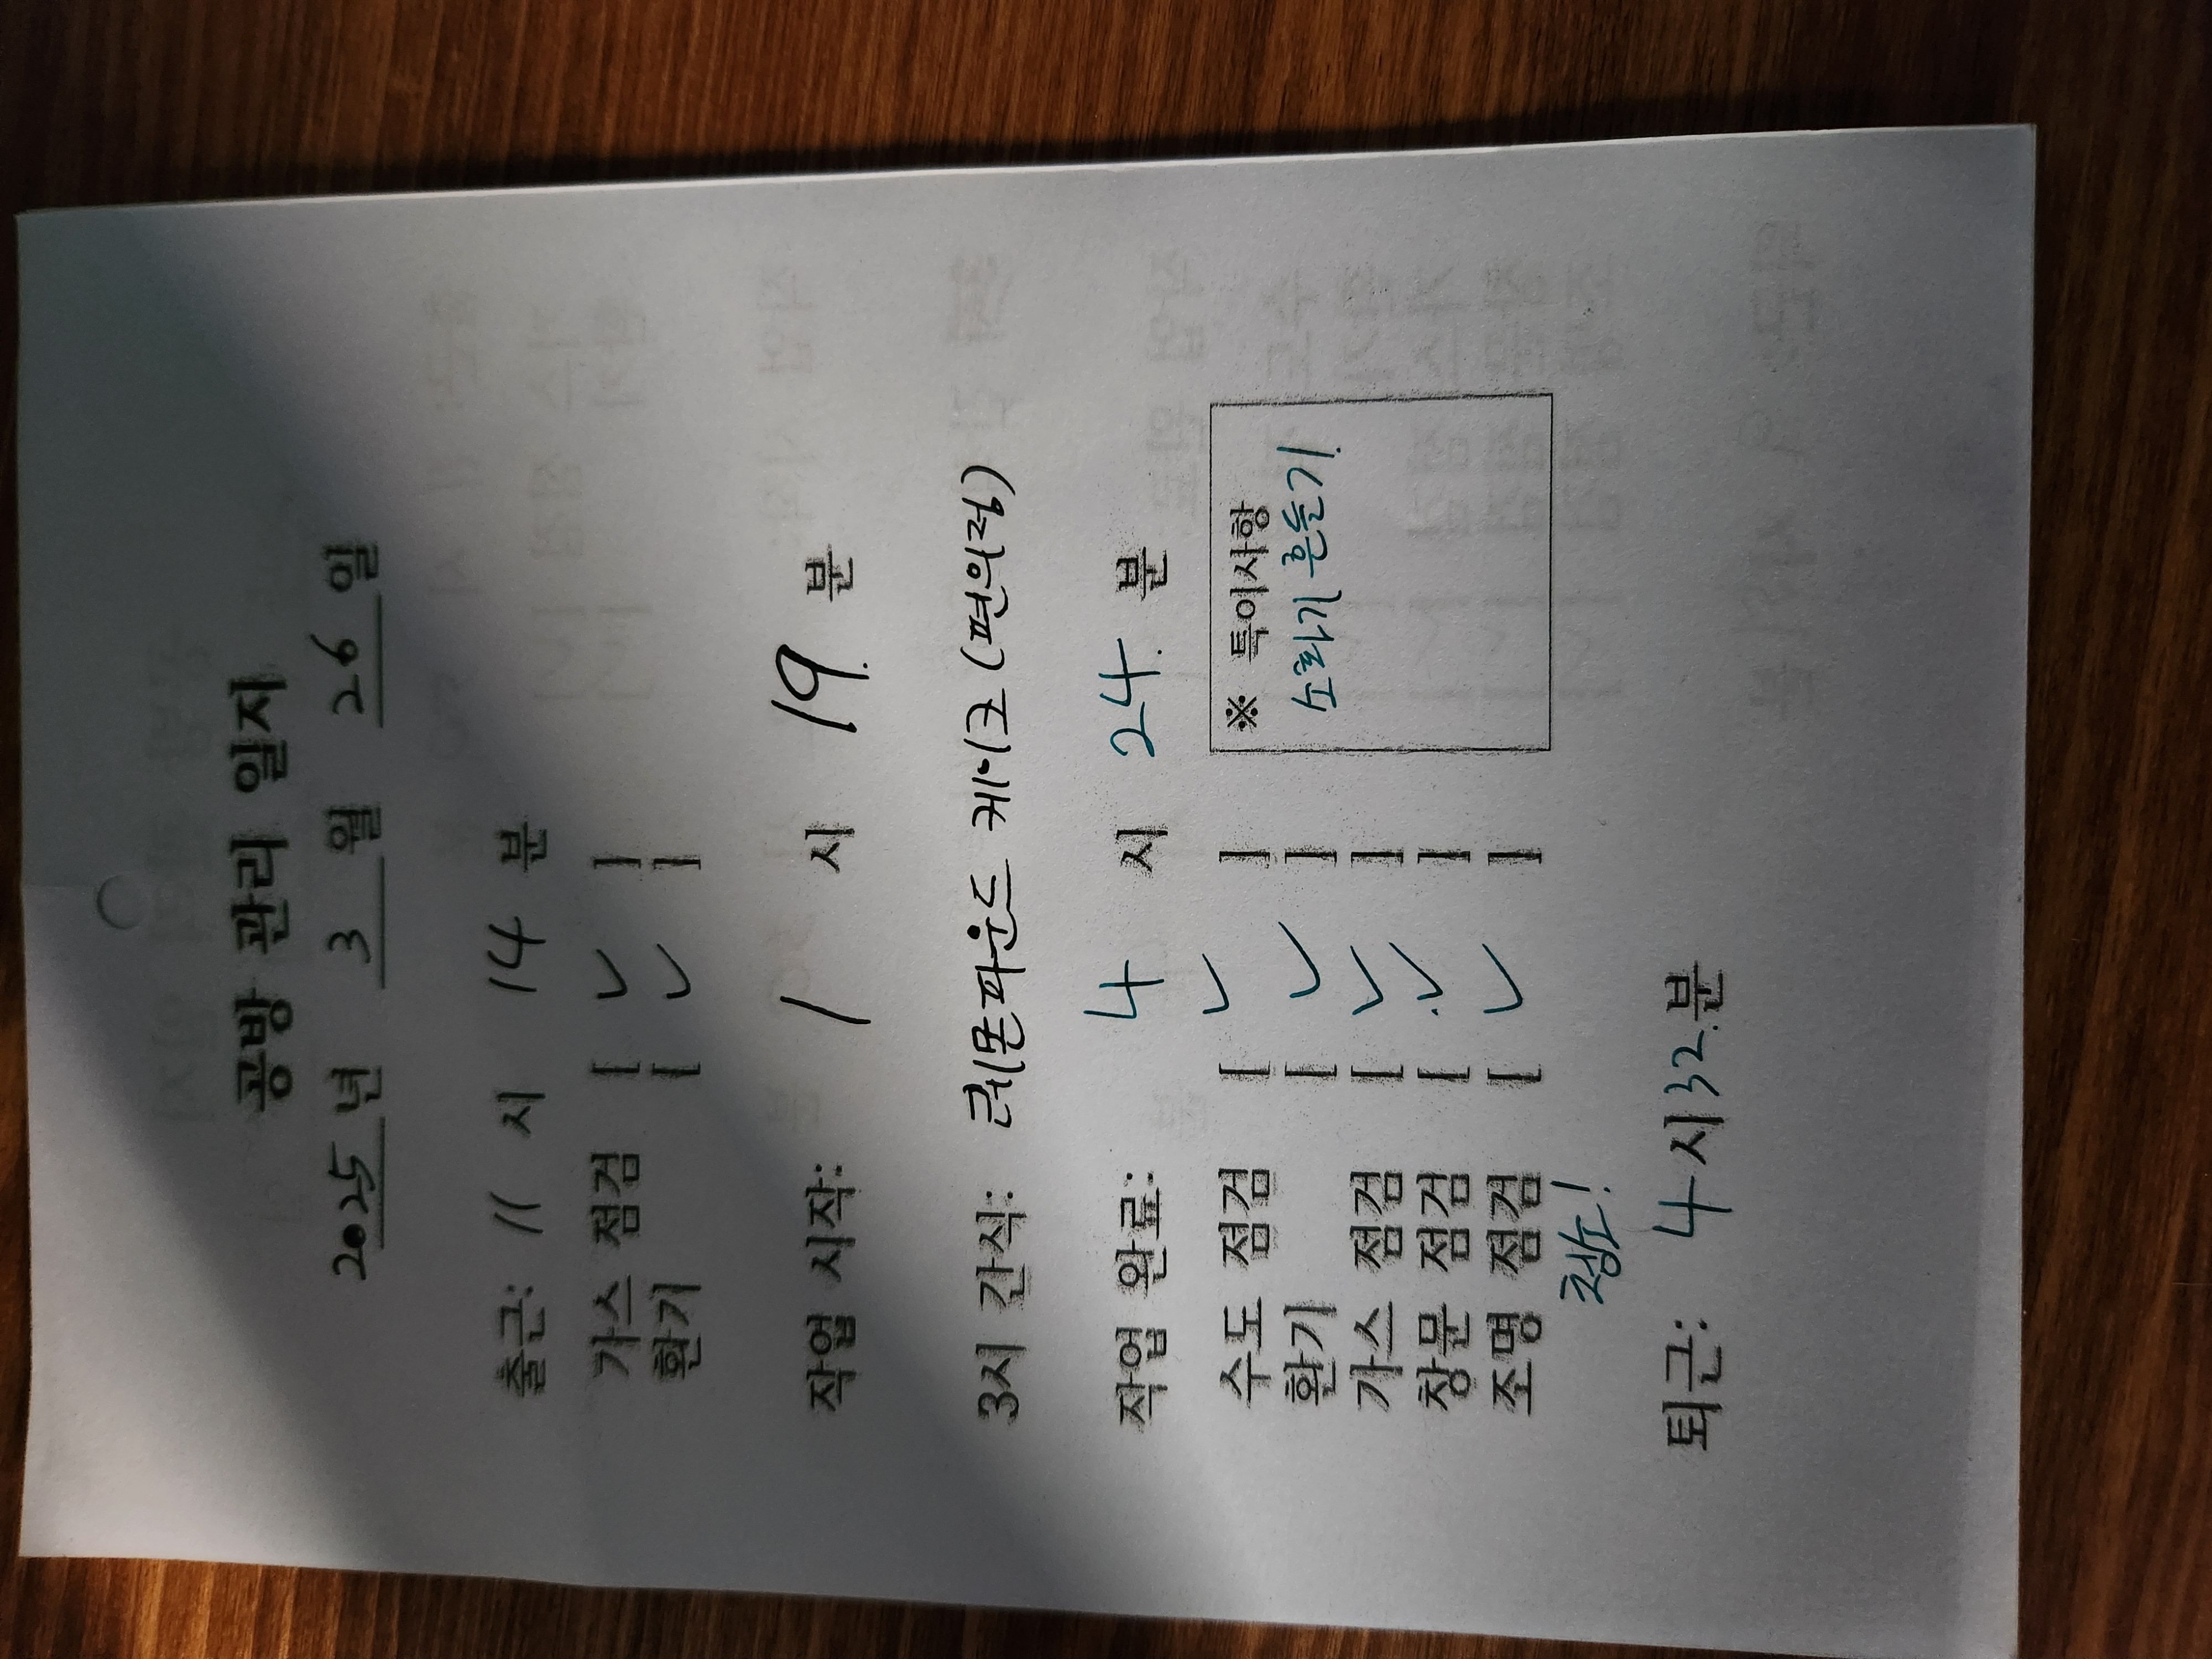 공방 관리 일지
2025년 3월 26일
출근: 11 시 14 분
가스 점검 [ ✓ ]
환기 [ ✓ ]
작업 시작: 1 시 19 분
3시 간식: 레몬파운드 케이크 (편의점)
작업 완료: 4 시 24 분
수도 점검 [ ✓ ]
환기 [ ✓ ]
가스 점검 [ ✓ ]
창문 점검 [ ✓ ]
조명 점검 [ ✓ ]
청소!
※ 특이사항
소화기 흔들기
퇴근: 4시 32분